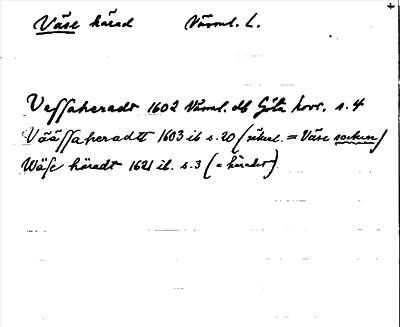 Väse härad Värml. L.
Vessaheradt 1602 Värml. db Göta hovr. s. 4
Väässaheradtt 1603 ib s. 20 (säkerl. = Väse socken)
Wäse häradt 1621 ib. s. 3 (= häradet)